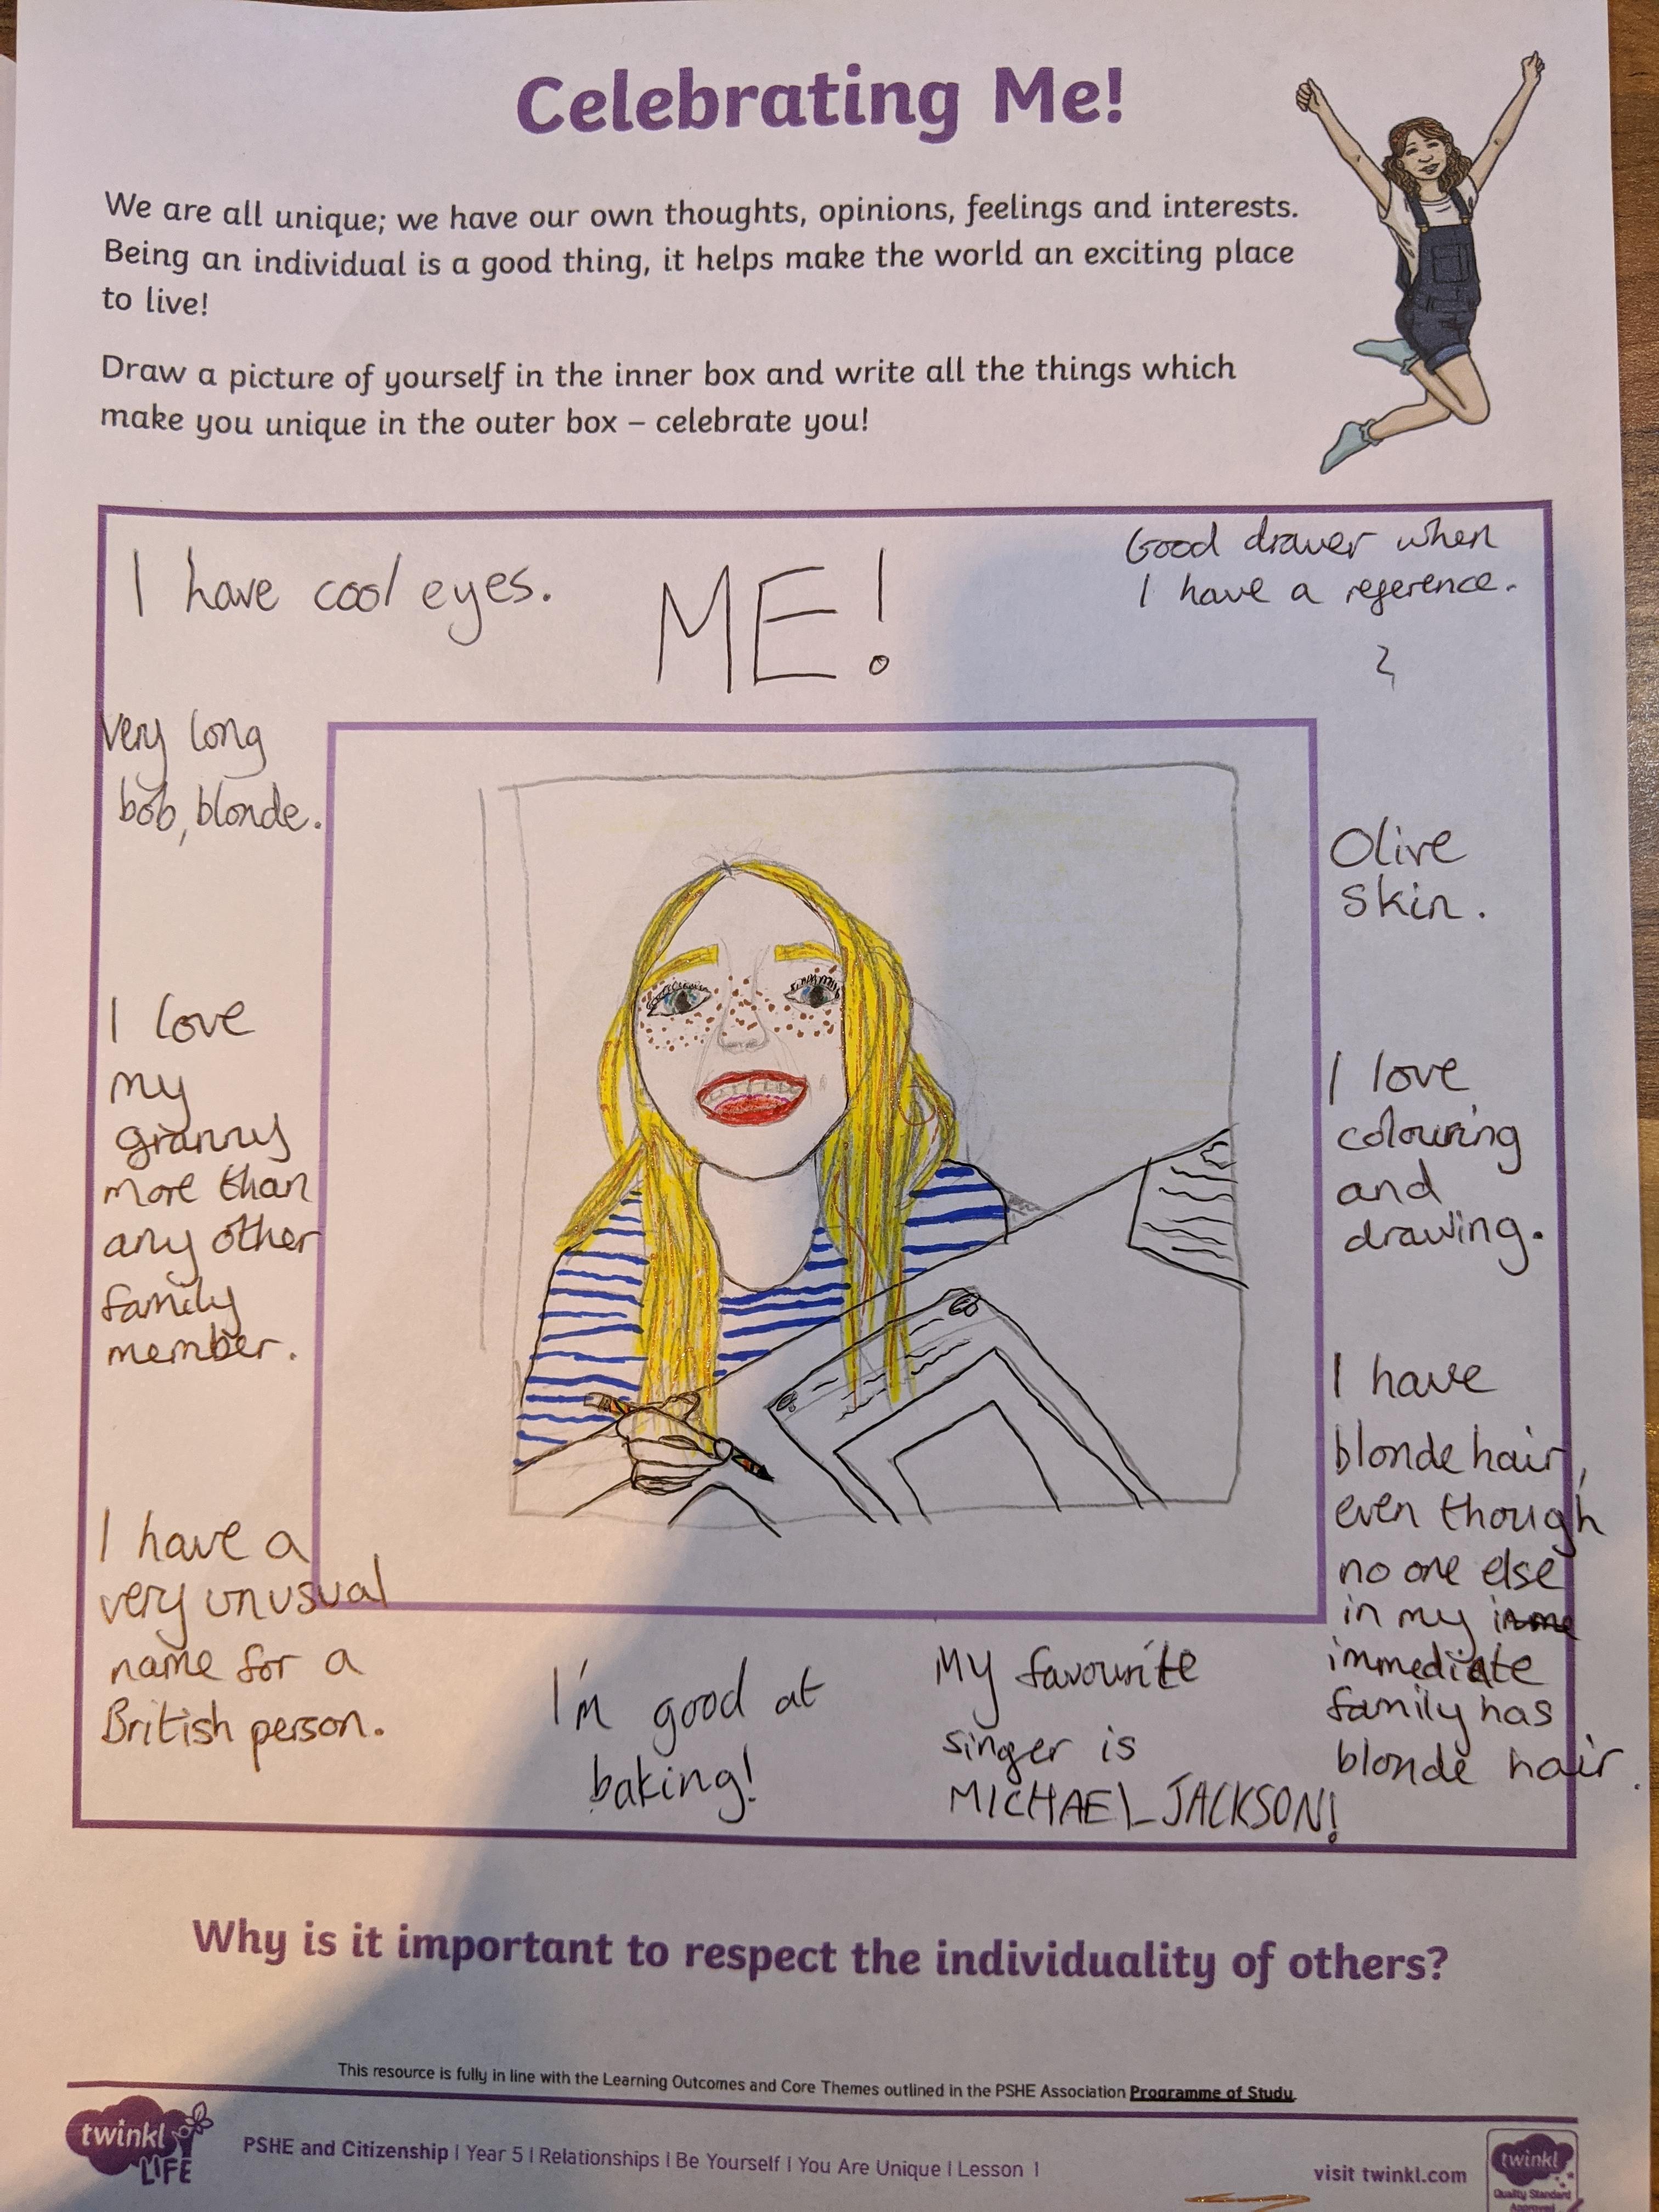 Celebrating Me!
We are all unique; we have our own thoughts, opinions, feelings and interests.
Being an individual is a good thing, it helps make the world an exciting place
to live!
Draw a picture of yourself in the inner box and write all the things which
make you unique in the outer box – celebrate you!
I have cool eyes.
ME!
Good drawer when
I have a reference.
Very long
bob, blonde.
Olive
skin.
I love
my
granny
more than
any other
family
member.
I love
colouring
and
drawing.
I have
blonde hair,
even though
no one else
in my imme
immediate
family has
blonde hair.
I have a
very unusual
name for a
British person.
I'm good at
baking!
My favourite
singer is
MICHAEL JACKSON!
Why is it important to respect the individuality of others?
This resource is fully in line with the Learning Outcomes and Core Themes outlined in the PSHE Association Programme of Study.
twinkl
LIFE
PSHE and Citizenship | Year 5 | Relationships | Be Yourself | You Are Unique | Lesson 1
visit twinkl.com
twinkl
Quality Standard
Approved